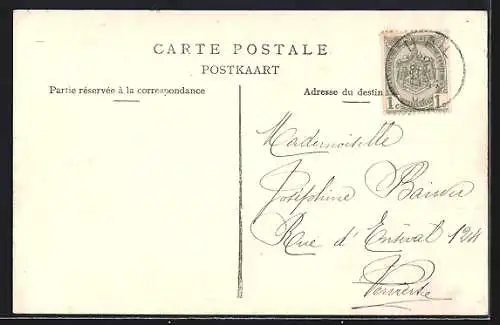 CARTE POSTALE
POSTKAART
Partie réservée à la correspondance
Adresse du destin
1c 1c
Mademoiselle
Joséphine
Rue d'Enseval 124